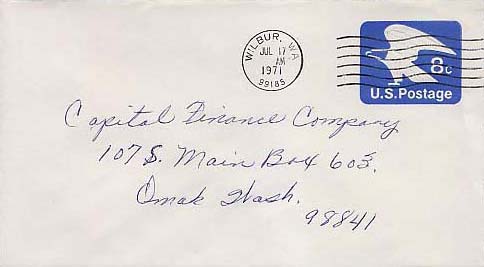 WILBUR, WA
JUL 17
AM
1971
99185
8c
U.S. Postage
Capital Finance Company
107 S. Main Box 603.
Omak Wash.
98841